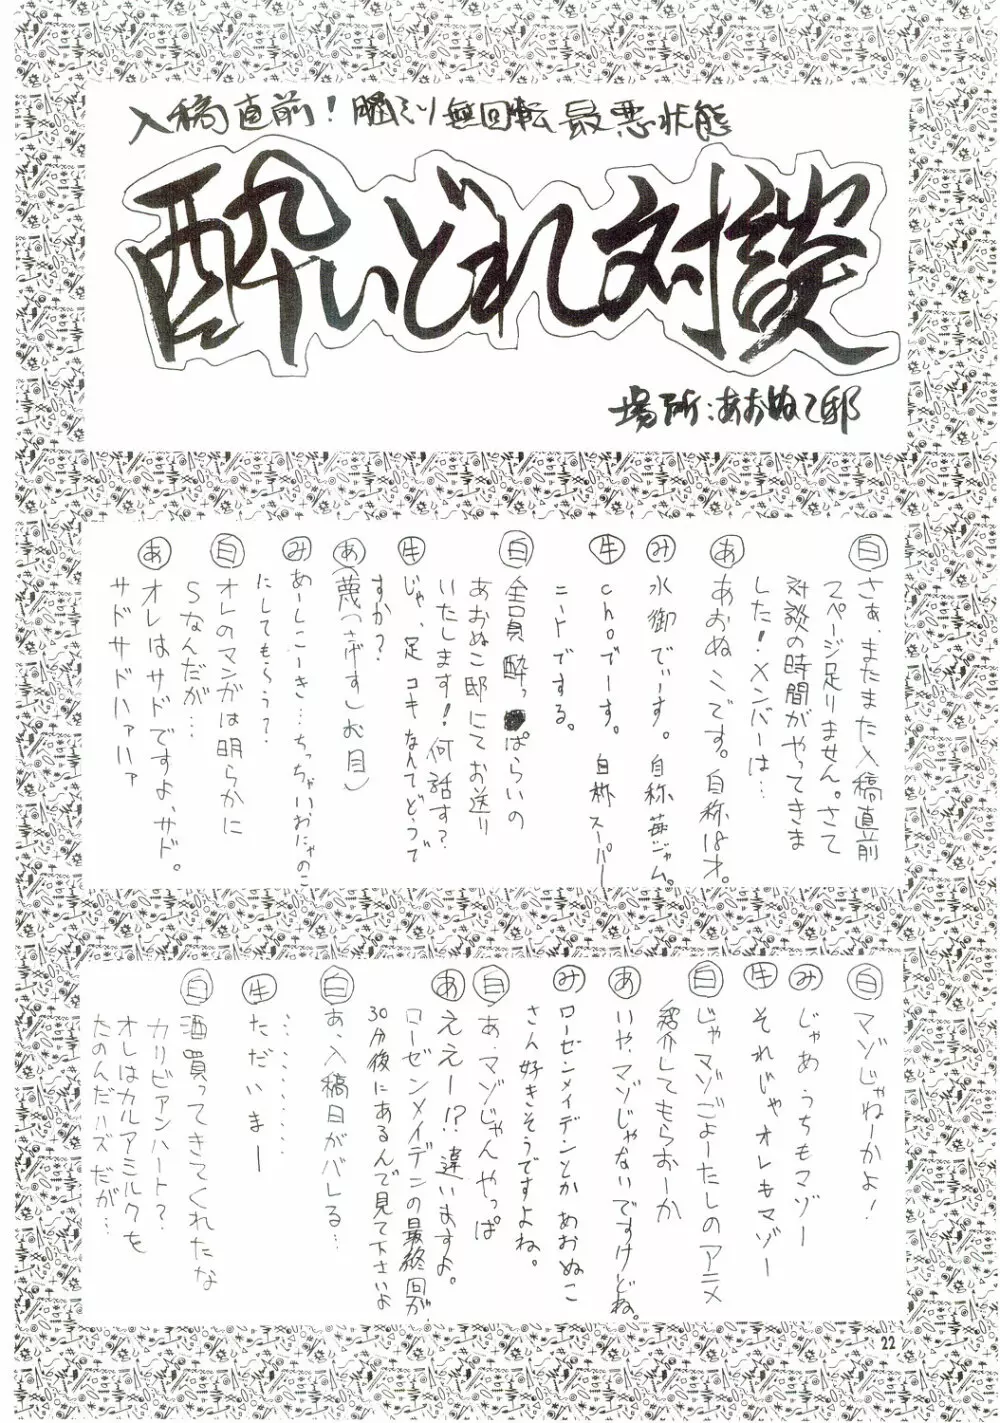 入稿直前！脳ミソ無回転最悪状態
酔いどれ対談
場所：あおぬこ邸
白 さぁ、またまた入稿直前
2ページ足りません。さて
対談の時間がやってきま
した！メンバーは…
あ あおぬこです。自称はオ。
み 水御でぃーす。自称苺ジャム。
牛 choでーす。自称スーパー
ニートでする。
白 全員酔っぱらいの
あおぬこ邸にてお送り
いたします！何話す？
牛 じゃ、足コキなんてどうで
すか？
あ （蔑（さげす）む目）
み あーしこーき…ちっちゃいおにゃのこ
にしてもらう？
白 オレのマンガは明らかに
Sなんだが…
あ オレはサドですよ、サド。
サドサドハァハァ
白 マゾじゃねーかよ！
み じゃあうちもマゾー
牛 それじゃオレもマゾー
白 じゃマゾごようたしのアニメ
紹介してもらおーか
あ いや、マゾじゃないですけどね。
み ローゼンメイデンとかあおぬこ
さん好きそうですよね。
白 あ、マゾじゃんやっぱ
あ ええー！？違いますよ。
ローゼンメイデンの最終回が
30分後にあるんで見て下さいよ
白 あ、入稿日がバレる…
…………
牛 ただいまー
白 酒買ってきてくれたな
カリビアンハート？
オレはカルアミルクを
たのんだハズだが…
22